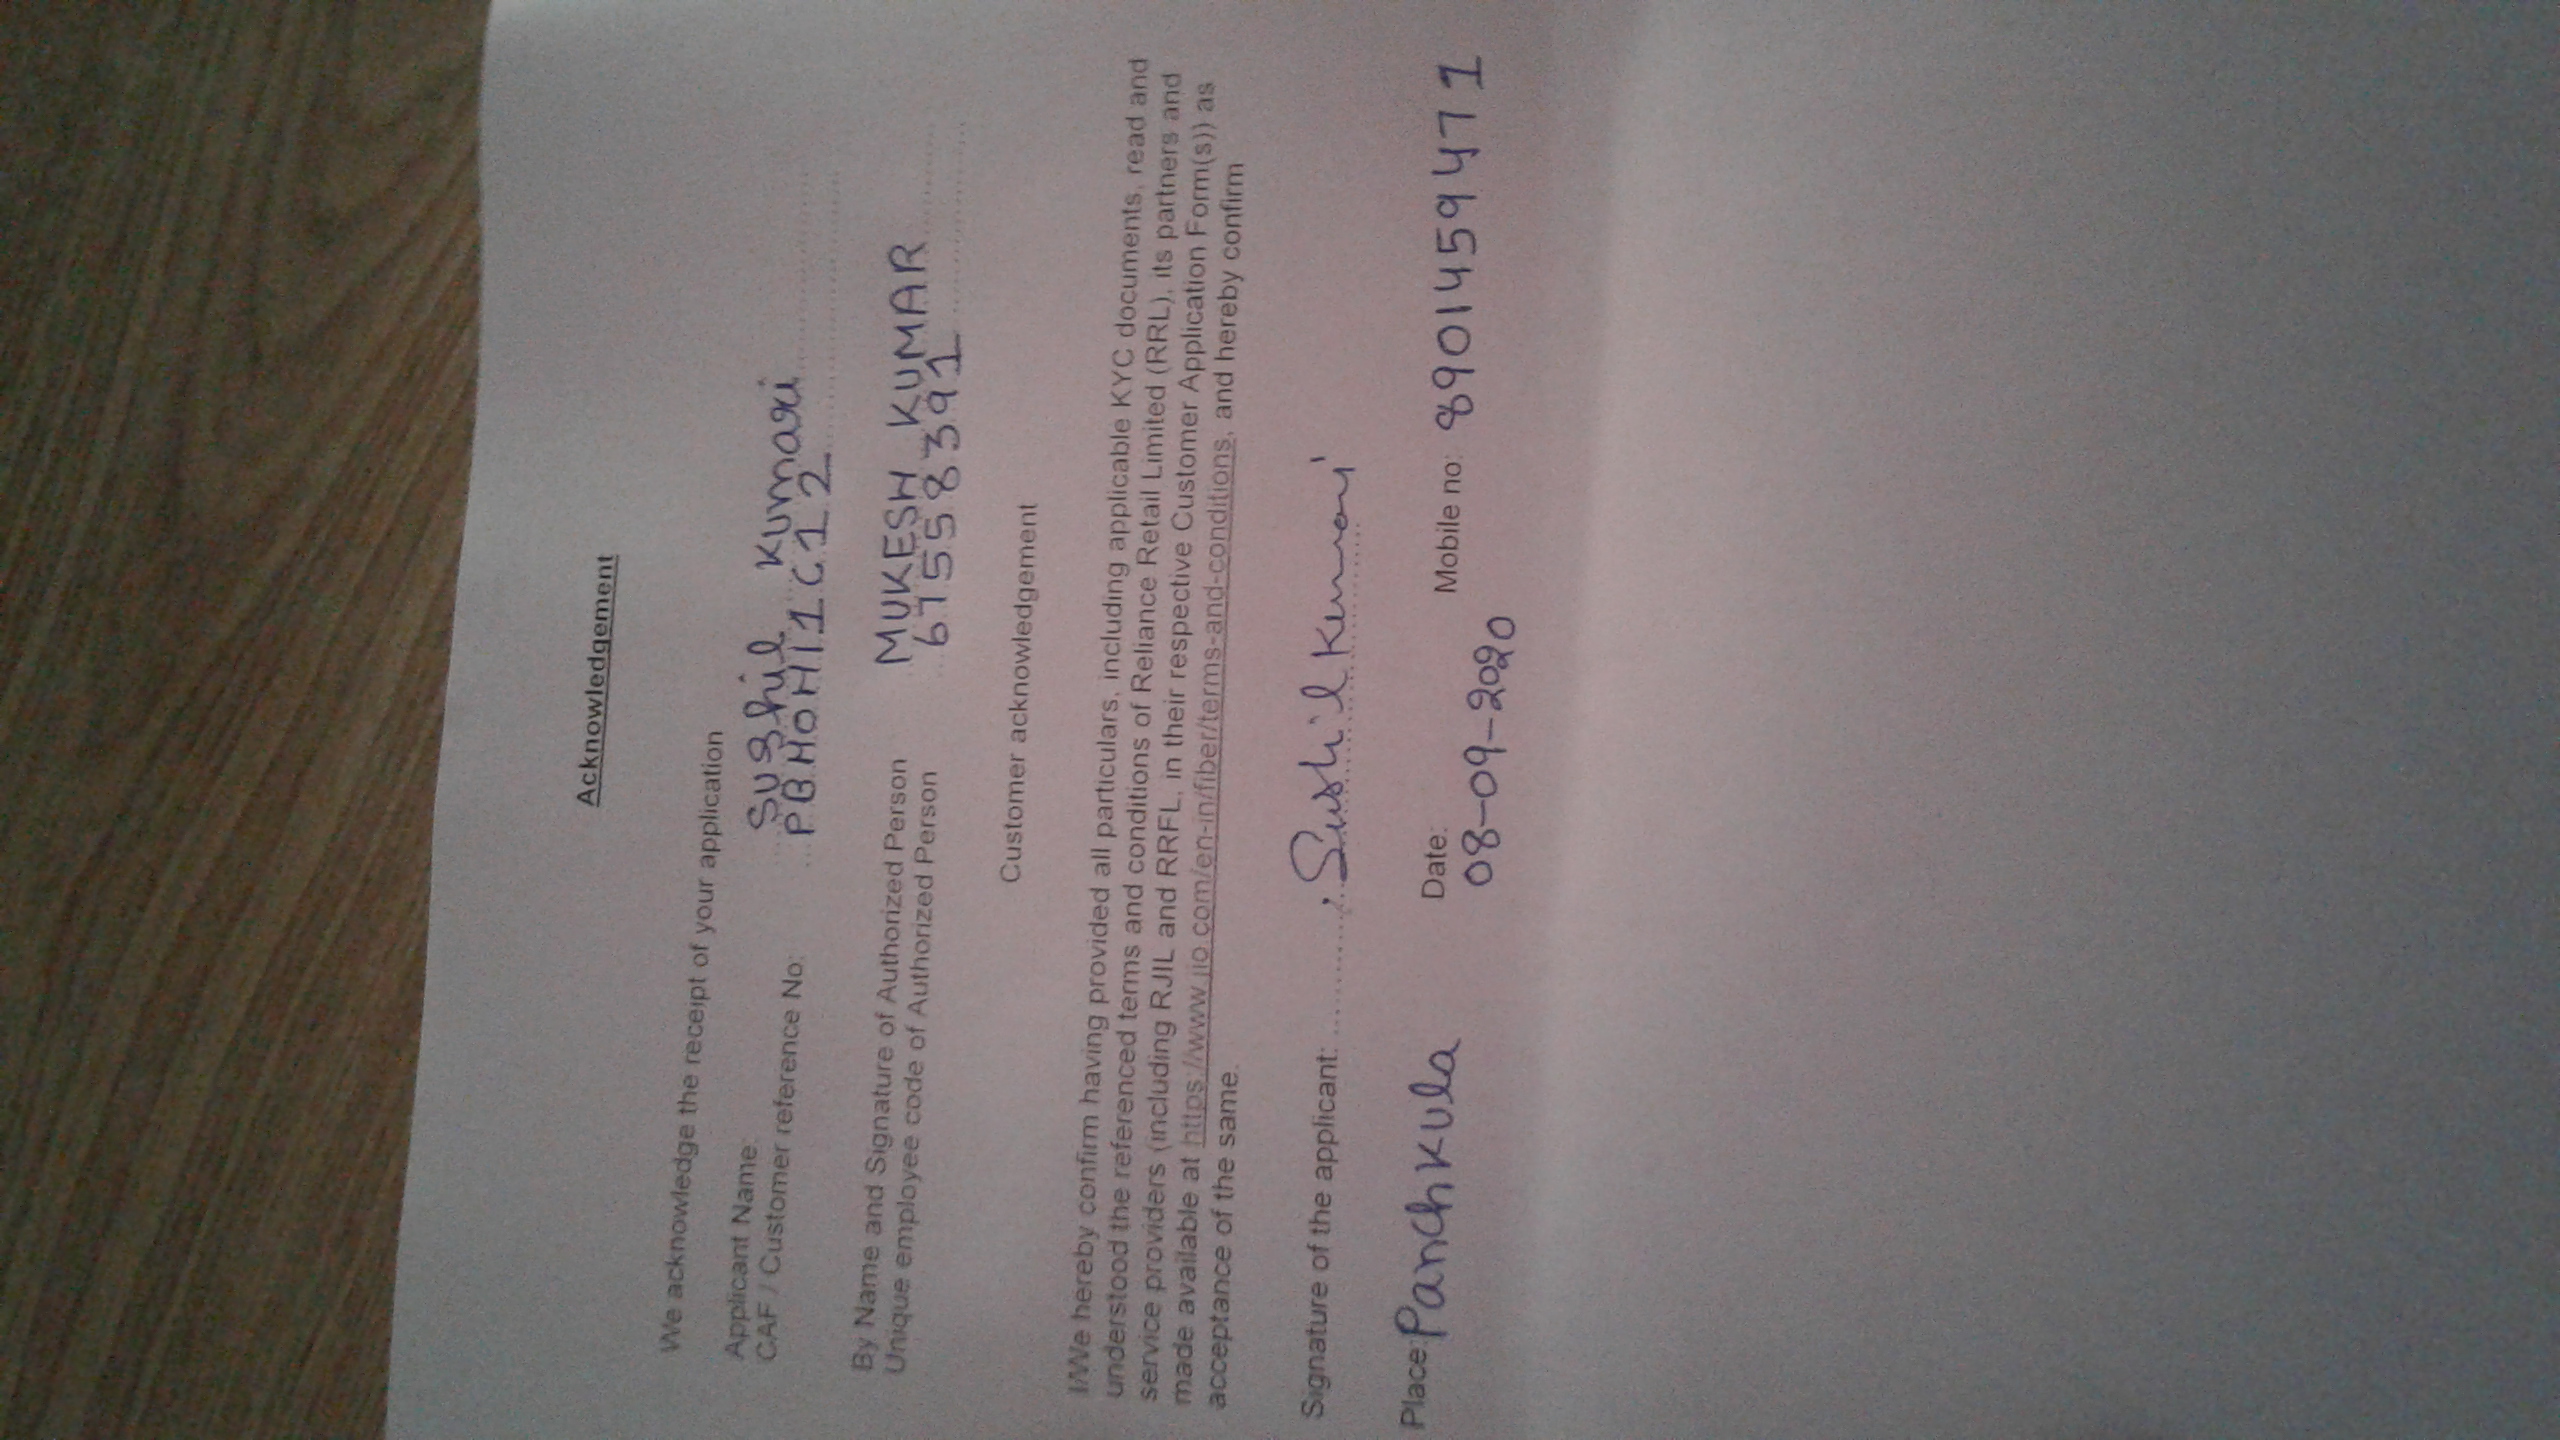 Acknowledgement
We acknowledge the receipt of your application
Applicant Name: Sushil Kumari
CAF / Customer reference No: PBHOHI1C12
By Name and Signature of Authorized Person MUKESH KUMAR
Unique employee code of Authorized Person 67558391
Customer acknowledgement
I/We hereby confirm having provided all particulars, including applicable KYC documents, read and
understood the referenced terms and conditions of Reliance Retail Limited (RRL), its partners and
service providers (including RJIL and RRFL, in their respective Customer Application Form(s)) as
made available at https://www.jio.com/en-in/fiber/terms-and-conditions, and hereby confirm
acceptance of the same.
Signature of the applicant: Sushil Kumari
Place: Panchkula Date: Mobile no: 8901459471
08-09-2020